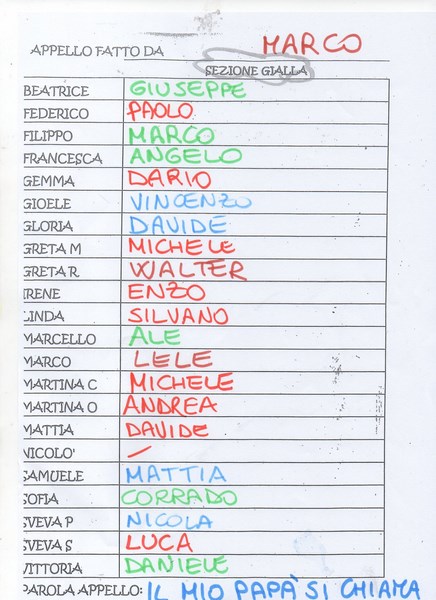 APPELLO FATTO DA MARCO
SEZIONE GIALLA
BEATRICE GIUSEPPE
FEDERICO PAOLO
FILIPPO MARCO
FRANCESCA ANGELO
GEMMA DARIO
GIOELE VINCENZO
GLORIA DAVIDE
GRETA M MICHELE
GRETA R WALTER
IRENE ENZO
LINDA SILVANO
MARCELLO ALE
MARCO LELE
MARTINA C MICHELE
MARTINA O ANDREA
MATTIA DAVIDE
NICOLO' /
SAMUELE MATTIA
SOFIA CORRADO
SVEVA P NICOLA
SVEVA S LUCA
VITTORIA DANIELE
PAROLA APPELLO: IL MIO PAPÀ SI CHIAMA